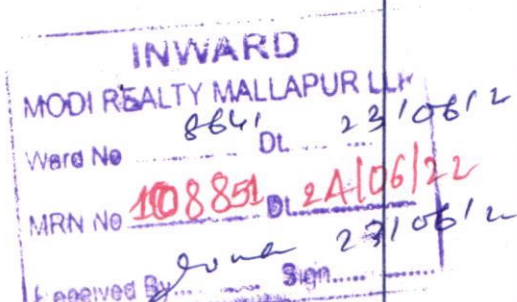 INWARD
MODI REALTY MALLAPUR LLP
Ward No 8641 Dt. 23/06/2
MRN No 108851 Dt. 24/06/22
Received By Sign 23/06/2